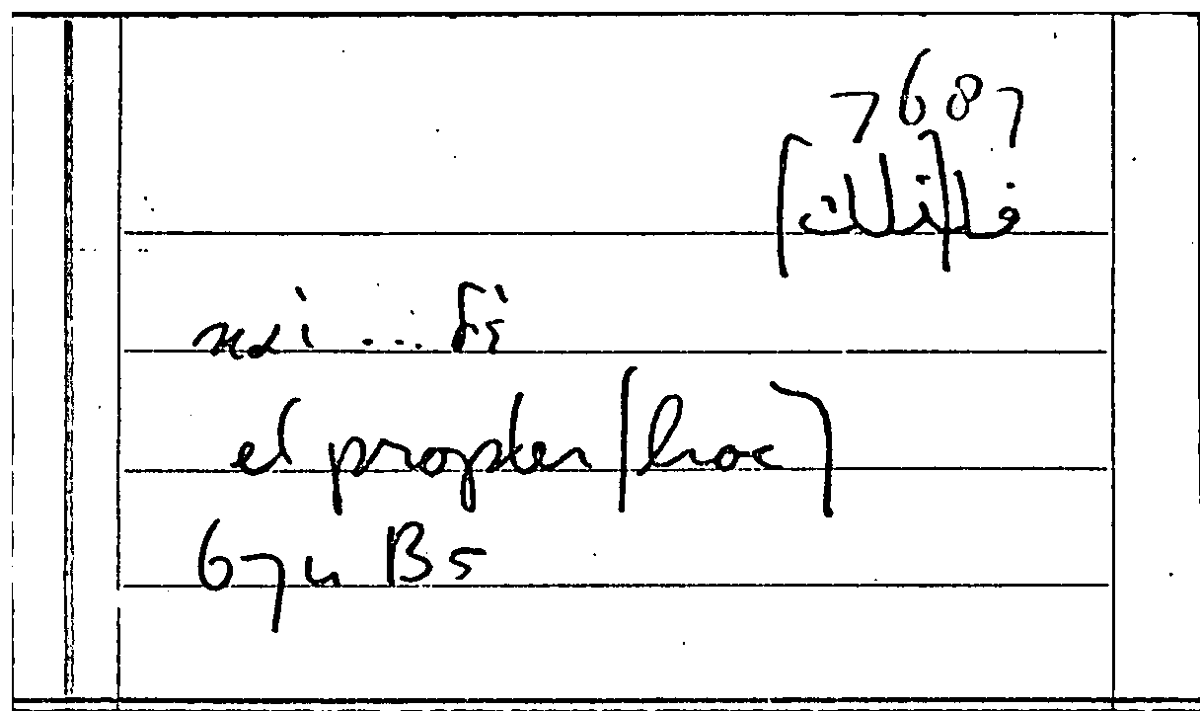 7687
فل[ذلك]
καὶ ...
et propter (hoc)
674 B5